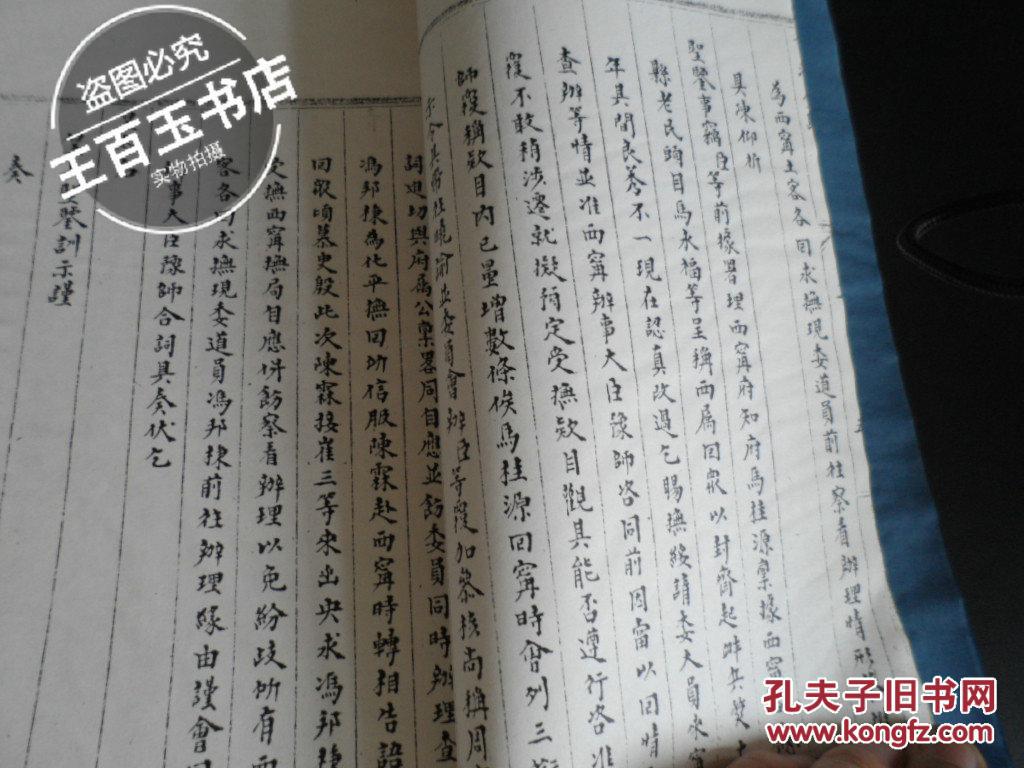 為西寧土客各回求撫現委道員前往察看辦理情形
具陳仰祈
聖鑒事竊臣等前據署理西寧府知府馬桂源稟據西寧
縣老民頭目馬永福等呈稱西屬回眾以封齋起衅兵焚
年其間良莠不一現在認真改過乞賜撫綏請委大員來寧
查辦等情並准西寧辦事大臣豫師咨同前因當以回情
覆不敢稍涉遷就擬預定受撫欵目觀其能否遵行咨准
師覆稱欵目內已量增數條俟馬桂源回寧時會列三
會辦臣等覆加參核尚稱周
詞迫切與府屬公稟畧同自應並飭委員同時辦理查
馮邦棟為化平撫回所信服陳霖赴西寧時轉相告語
回眾頃慕史殷此次陳霖接崔三等來出央求馮邦棟
受撫西寧撫局自應併飭察看辦理以免紛歧所有西
客各回求撫現委道員馮邦棟前往辦理緣由謹會同
事大臣豫師合詞具奏伏乞
鑒訓示謹
奏
盗图必究
王百玉书店
实物拍摄
孔夫子旧书网
www.kongfz.com